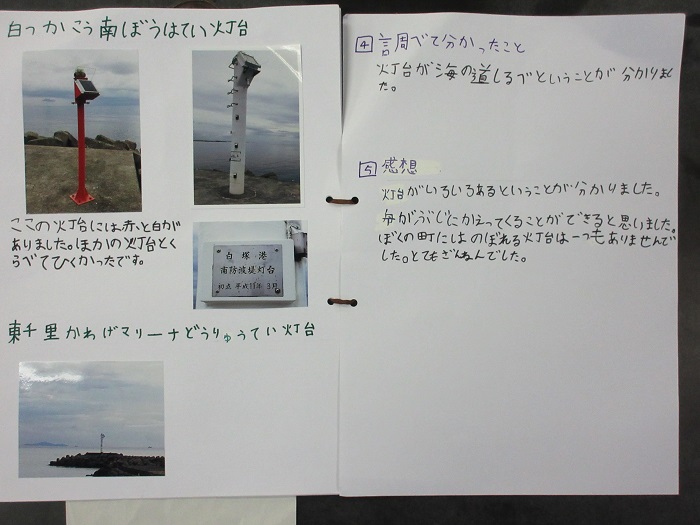 白つかこう南ぼうはてい灯台
ここの灯台には、赤と白が
ありました。ほかの灯台とく
らべてひくかったです。
白塚港
南防波堤灯台
初点 平成11年 3月
東千里かわげマリーナどうりゅうてい灯台
4 調べて分かったこと
灯台が海の道しるべということが分かりまし
た。
5 感想
灯台がいろいろあるということが分かりました。
毎がぶじにかえってくることができると思いました。
ぼくの町にはのぼれる灯台は一つもありませんで
した。とてもざんねんでした。